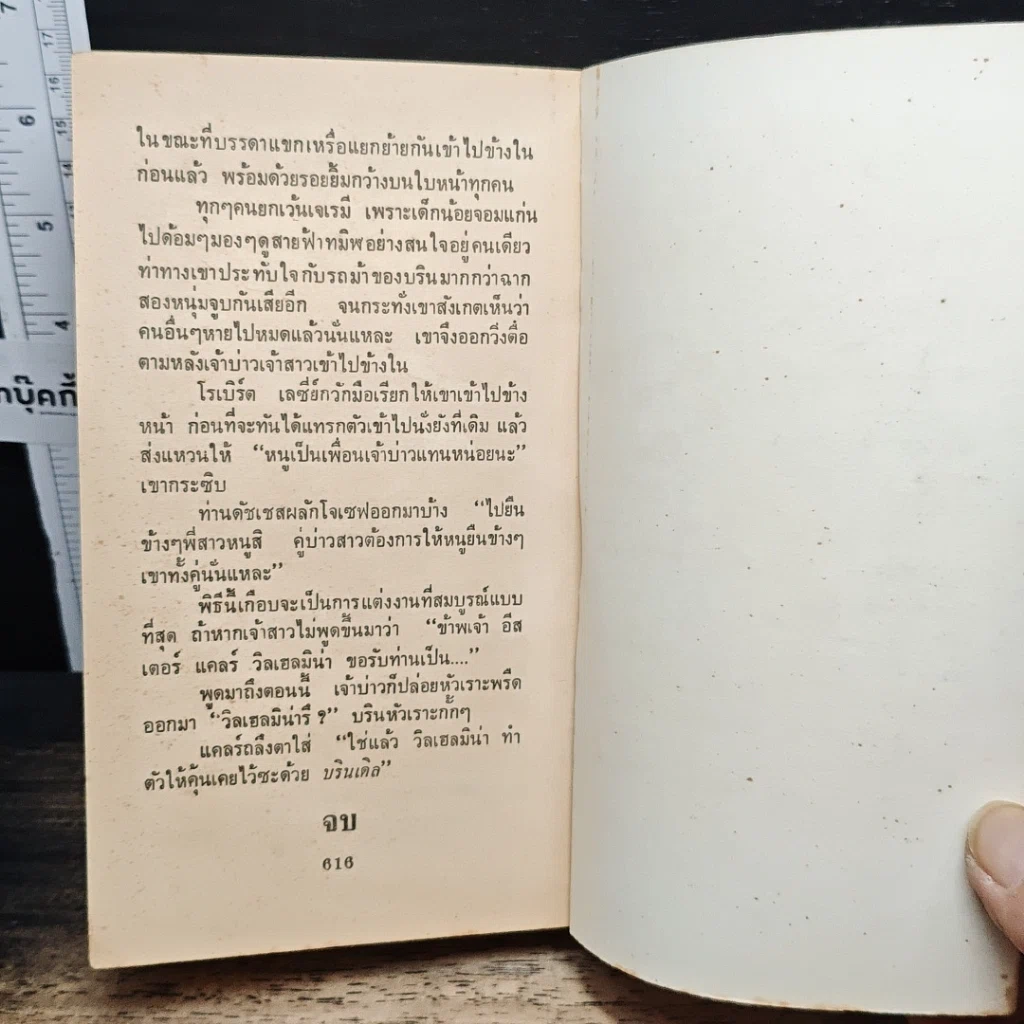 ในขณะที่บรรดาแขกเหรื่อแยกย้ายกันเข้าไปข้างใน
ก่อนแล้ว พร้อมด้วยรอยยิ้มกว้างบนใบหน้าทุกคน
ทุกๆคนยกเว้นเจเรมี เพราะเด็กน้อยจอมแก่น
ไปด้อมๆมองๆดูสายฟ้าทมิฬอย่างสนใจอยู่คนเดียว
ท่าทางเขาประทับใจกับรถม้าของบรินมากกว่าฉาก
สองหนุ่มจูบกันเสียอีก จนกระทั่งเขาสังเกตเห็นว่า
คนอื่นๆหายไปหมดแล้วนั่นแหละ เขาจึงออกวิ่งตื๋อ
ตามหลังเจ้าบ่าวเจ้าสาวเข้าไปข้างใน
โรเบิร์ต เลซี่ย์กวักมือเรียกให้เขาเข้าไปข้าง
หน้า ก่อนที่จะทันได้แทรกตัวเข้าไปนั่งยังที่เดิม แล้ว
ส่งแหวนให้ “หนูเป็นเพื่อนเจ้าบ่าวแทนหน่อยนะ”
เขากระซิบ
ท่านดัชเชสผลักโจเซฟออกมาบ้าง “ไปยืน
ข้างๆพี่สาวหนูสิ คู่บ่าวสาวต้องการให้หนูยืนข้างๆ
เขาทั้งคู่นั่นแหละ”
พิธีนี้เกือบจะเป็นการแต่งงานที่สมบูรณ์แบบ
ที่สุด ถ้าหากเจ้าสาวไม่พูดขึ้นมาว่า “ข้าพเจ้า อีส
เตอร์ แคลร์ วิลเฮลมิน่า ขอรับท่านเป็น....”
พูดมาถึงตอนนี้ เจ้าบ่าวก็ปล่อยหัวเราะพรืด
ออกมา “วิลเฮลมิน่ารึ ?” บรินหัวเราะกั๊กๆ
แคลร์ถลึงตาใส่ “ใช่แล้ว วิลเฮลมิน่า ทำ
ตัวให้คุ้นเคยไว้ซะด้วย บรินเดิล”
จบ
616
7
6
5
4
17
16
15
14